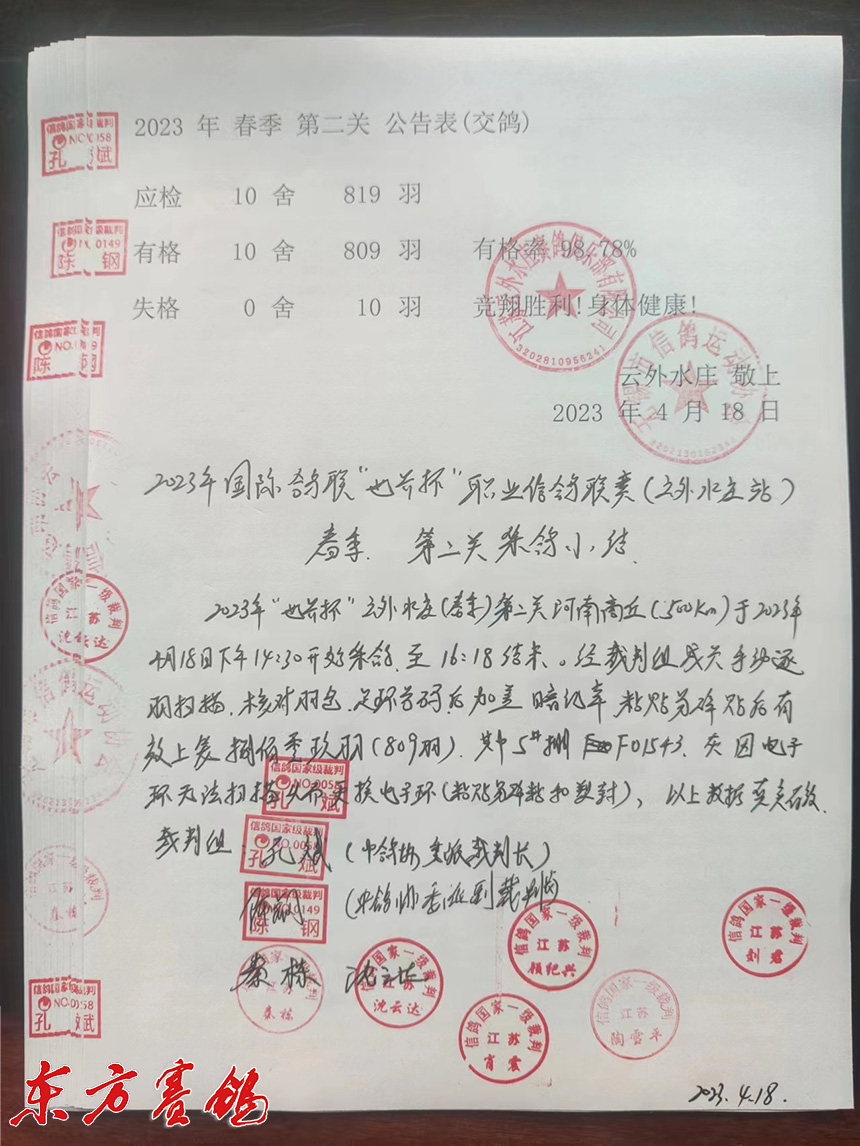 2023 年 春季 第二关 公告表(交鸽)
应检 10 舍 819 羽
有格 10 舍 809 羽 有格率 98.78%
失格 0 舍 10 羽 竞翔胜利!身体健康!
云外水庄 敬上
2023 年 4 月 18 日
2023年国际鸽联"也前杯"职业信鸽联赛(云外水庄站)
春季 第二关 集鸽小结
2023年"也前杯"云外水庄(春季)第二关河南商丘(500Km)于2023年
4月18日下午14:30开始集鸽,至16:18结束。经裁判组成员手动逐
羽扫描、核对羽色、足环号码后加盖暗记章,粘贴兑碎贴后有
效上笼捌佰零玖羽(809羽).其中5#棚 F01543.灰因电子
环无法扫描 更换电子环(粘贴兑碎贴和塑封),以上数据真实有效.
裁判组: 孔斌 (中鸽协委派裁判长)
陈钢 (中鸽协委派副裁判长)
秦栋 沈云达
2023.4.18.
信鸽国家级裁判
NO.0058
孔斌
信鸽国家级裁判
NO.0149
陈钢
3202810956241
信鸽国家一级裁判
江苏
沈云达
信鸽国家一级裁判
江苏
秦栋
信鸽国家一级裁判
江苏
顾纪兴
信鸽国家一级裁判
江苏
肖震
信鸽国家一级裁判
江苏
陶雪平
信鸽国家一级裁判
江苏
刘君
东方赛鸽